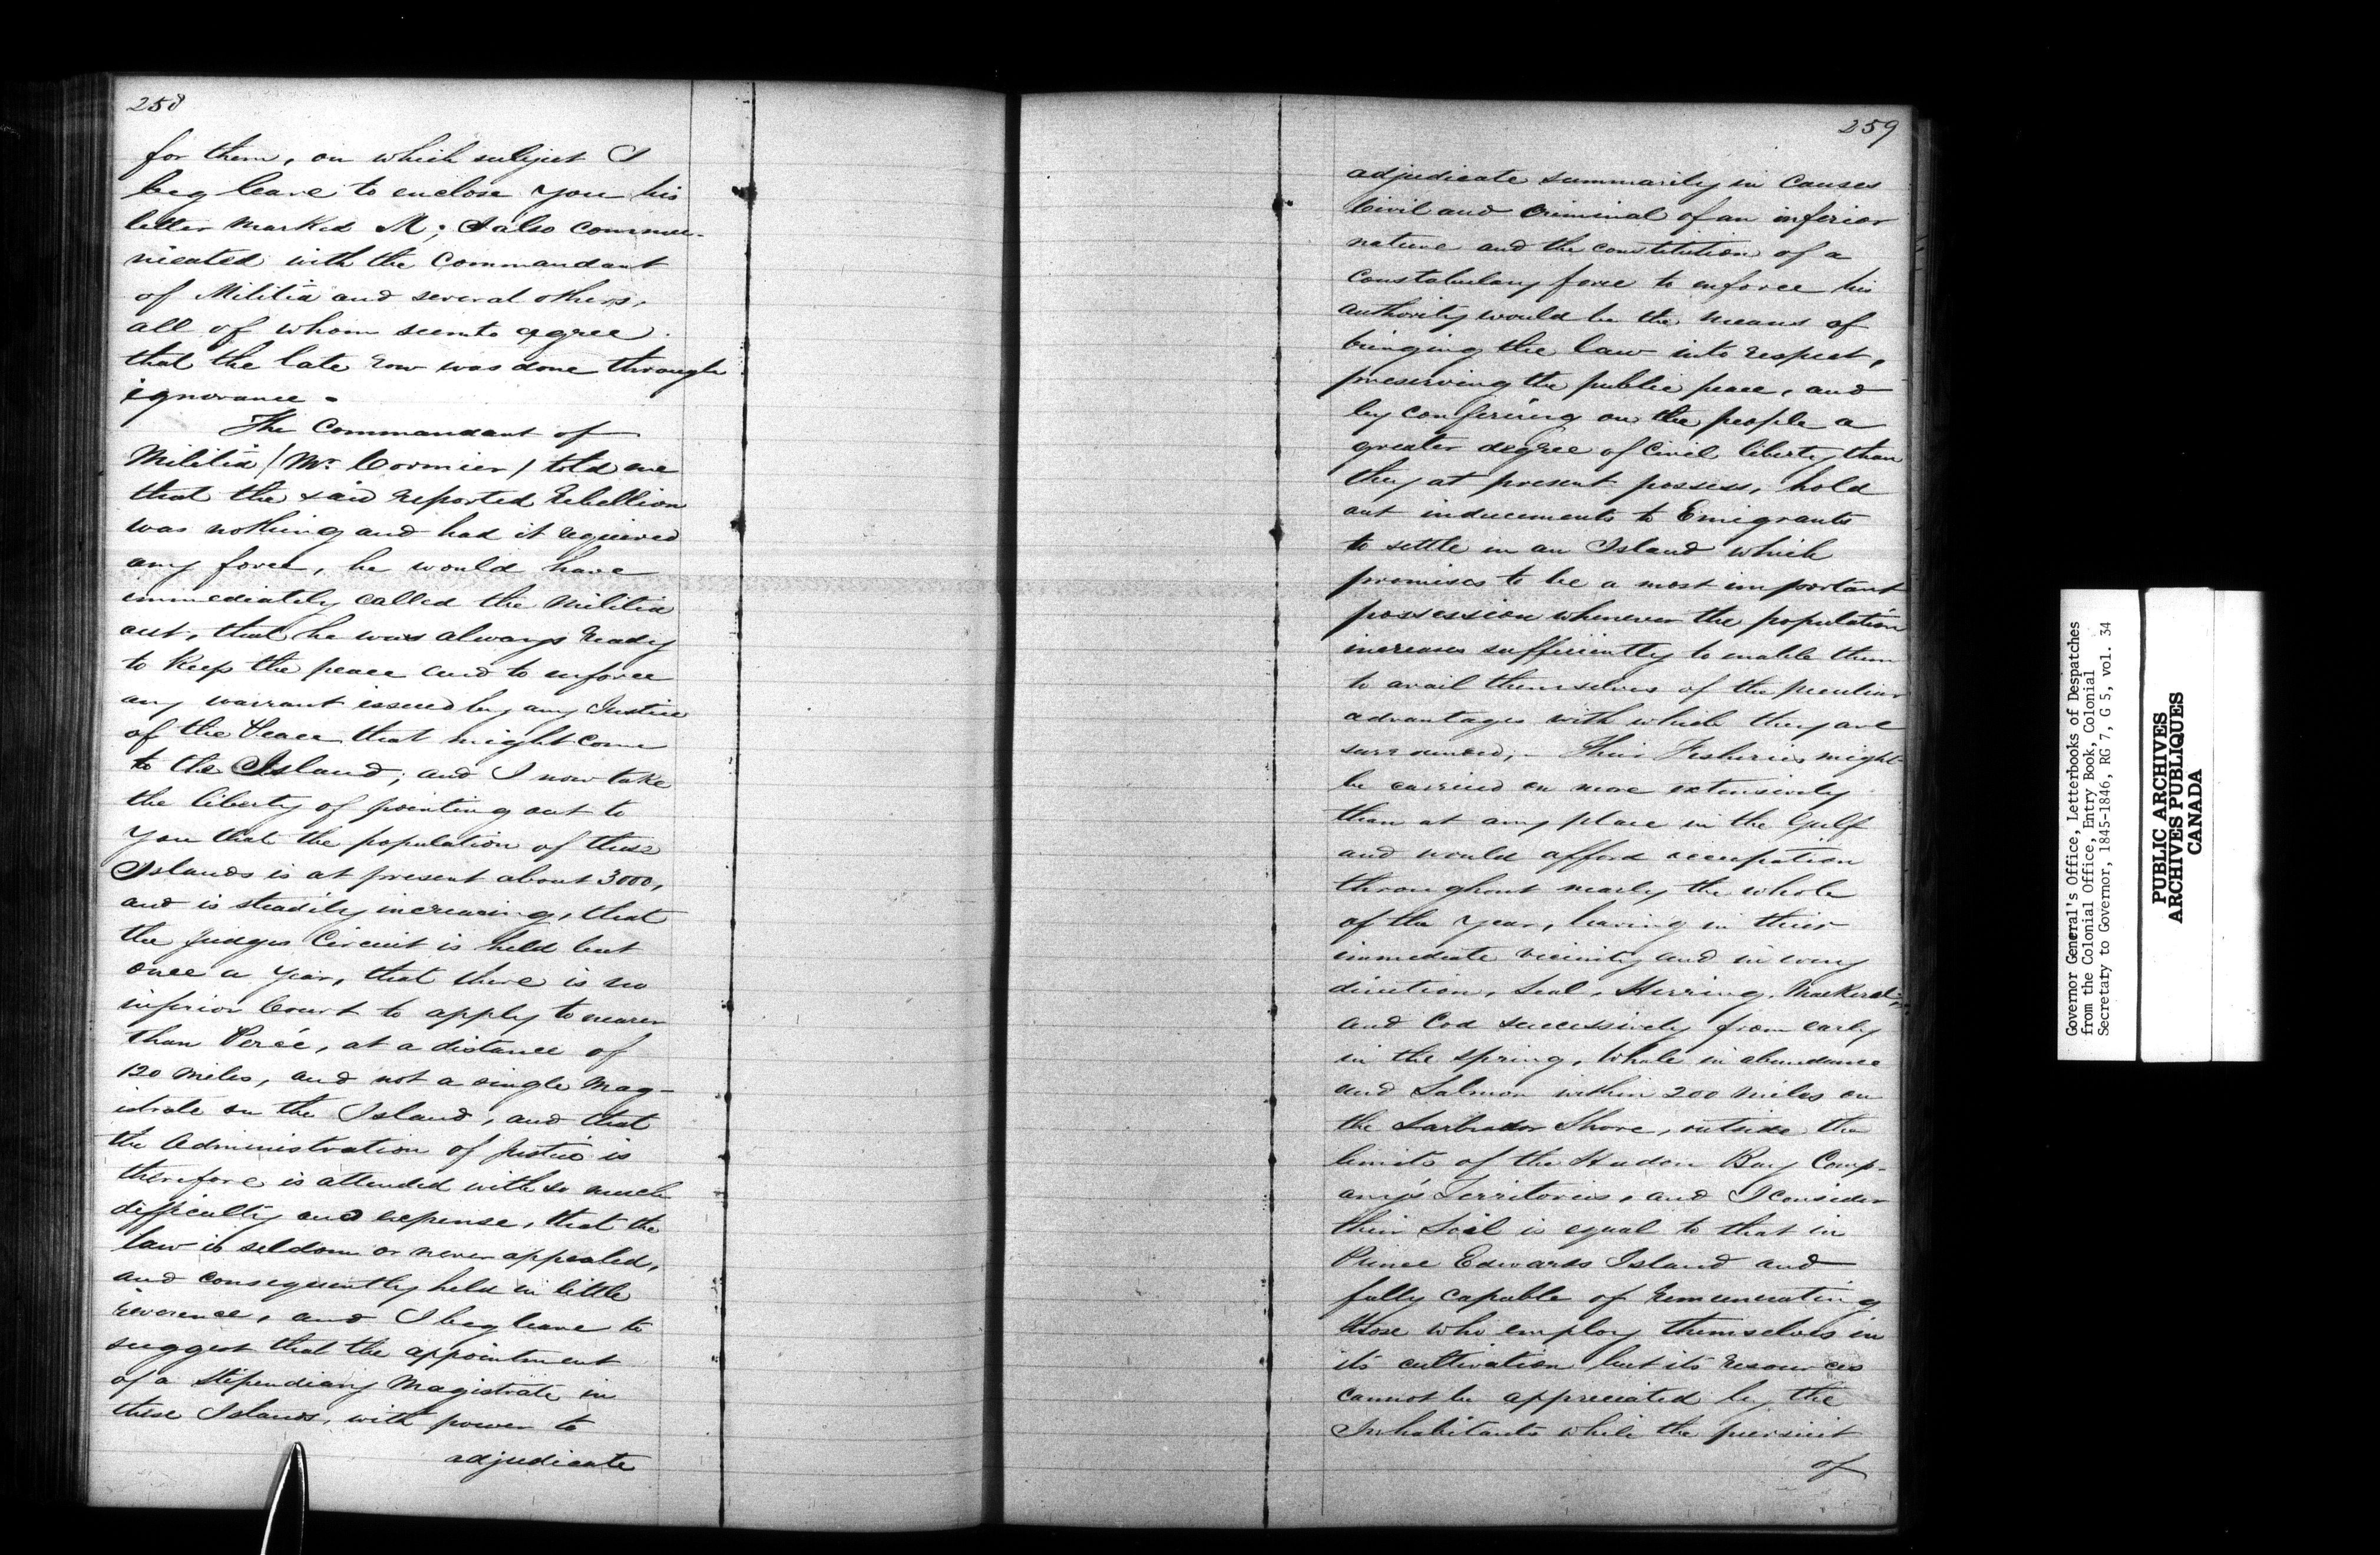 258
for them, on which subject I
beg leave to enclose you his
letter marked M; I also commu-
nicated with the Commandant
of Militia and several others,
all of whom seem to agree
that the late row was done through
ignorance.
The Commandant of
Militia (Mr. Cormier) told me
that the said reported Rebellion
was nothing and had it required
any force, he would have
immediately called the Militia
out, that he was always ready
to keep the peace and to enforce
any warrant issued by any Justice
of the Peace that might come
to the Island; and I now take
the liberty of pointing out to
you that the population of these
Islands is at present about 3000,
and is steadily increasing, that
the Judges Circuit is held but
once a year, that there is no
inferior Court to apply to nearer
than Percé, at a distance of
120 miles, and not a single Mag-
istrate on the Island, and that
the Administration of Justice is
therefore is attended with so much
difficulty and expense, that the
law is seldom or never appealed,
and consequently held in little
reverence, and I beg leave to
suggest that the appointment
of a Stipendiary Magistrate in
these Islands, with power to
adjudicate
259
adjudicate summarily in Causes
Civil and Criminal of an inferior
nature and the constitution of a
Constabulary force to enforce his
authority would be the means of
bringing the law into respect,
preserving the public peace, and
by confering on the people a
greater degree of Civil liberty than
they at present possess, hold
out inducements to Emigrants
to settle in an Island which
promises to be a most important
possession whenever the population
increases sufficiently to enable them
to avail themselves of the peculiar
advantages with which they are
surrounded; - Their Fisheries might
be carried on more extensively
than at any place in the Gulf
and would afford occupation
throughout nearly the whole
of the year, having in their
immediate vicinity and in every
direction, Seal, Herring, Mackeral,
and Cod successively from early
in the spring, Whale in abundance
and Salmon within 200 miles on
the Labrador Shore, outside the
limits of the Hudson Bay Comp-
any's Territories, and I consider
their Soil is equal to that in
Prince Edwards Island and
fully capable of remunerating
those who employ themselves in
its cultivation but its resources
cannot be appreciated by the
Inhabitants while the pursuit
of
Governor General's Office, Letterbooks of Despatches
from the Colonial Office, Entry Book, Colonial
Secretary to Governor, 1845-1846, RG 7, G 5, vol. 34
PUBLIC ARCHIVES
ARCHIVES PUBLIQUES
CANADA